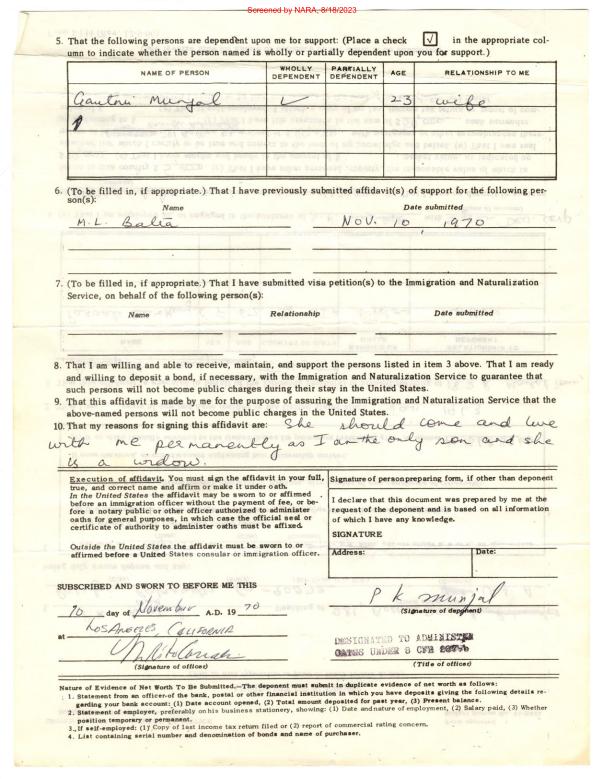 Screened by NARA, 8/18/2023
5. That the following persons are dependent upon me for support: (Place a check √ in the appropriate col-
umn to indicate whether the person named is wholly or partially dependent upon you for support.)
NAME OF PERSON WHOLLY DEPENDENT PARTIALLY DEPENDENT AGE RELATIONSHIP TO ME
Munjal ✓ 23 wife
6. (To be filled in, if appropriate.) That I have previously submitted affidavit(s) of support for the following per-
son(s):
Name Date submitted
M.L. Balia NOV. 10, 1970
7. (To be filled in, if appropriate.) That I have submitted visa petition(s) to the Immigration and Naturalization
Service, on behalf of the following person(s):
Name Relationship Date submitted
8. That I am willing and able to receive, maintain, and support the persons listed in item 3 above. That I am ready
and willing to deposit a bond, if necessary, with the Immigration and Naturalization Service to guarantee that
such persons will not become public charges during their stay in the United States.
9. That this affidavit is made by me for the purpose of assuring the Immigration and Naturalization Service that the
above-named persons will not become public charges in the United States.
10. That my reasons for signing this affidavit are: She should come and live
with me permanently as I am the only son and she
is a widow.
Execution of affidavit. You must sign the affidavit in your full,
true, and correct name and affirm or make it under oath.
In the United States the affidavit may be sworn to or affirmed
before an immigration officer without the payment of fee, or be-
fore a notary public or other officer authorized to administer
oaths for general purposes, in which case the official seal or
certificate of authority to administer oaths must be affixed.
Outside the United States the affidavit must be sworn to or
affirmed before a United States consular or immigration officer.
Signature of person preparing form, if other than deponent
I declare that this document was prepared by me at the
request of the deponent and is based on all information
of which I have any knowledge.
SIGNATURE
Address: Date:
SUBSCRIBED AND SWORN TO BEFORE ME THIS
10 day of November A.D. 1970
P K munjal
(Signature of deponent)
at LOS ANGELES, CALIFORNIA
DESIGNATED TO ADMINISTER
OATHS UNDER 8 CFR
(Signature of officer) (Title of officer)
Nature of Evidence of Net Worth To Be Submitted.—The deponent must submit in duplicate evidence of net worth as follows:
1. Statement from an officer of the bank, postal or other financial institution in which you have deposits giving the following details re-
garding your bank account: (1) Date account opened, (2) Total amount deposited for past year, (3) Present balance.
2. Statement of employer, preferably on his business stationery, showing: (1) Date and nature of employment, (2) Salary paid, (3) Whether
position temporary or permanent.
3. If self-employed: (1) Copy of last income tax return filed or (2) report of commercial rating concern.
4. List containing serial number and denomination of bonds and name of purchaser.